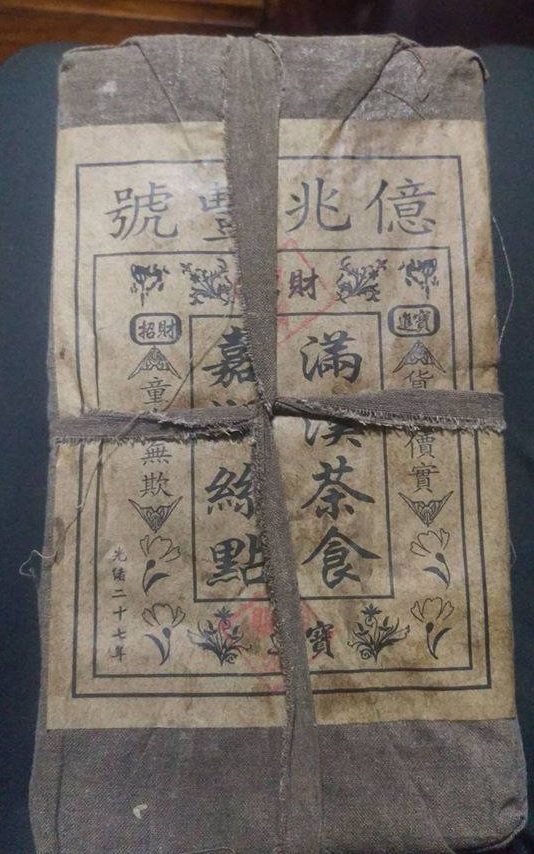 億兆豐號
財
進寶
貨真價實
滿漢茶食
嘉湖絲點
招財
童叟無欺
光緒二十七年
寶